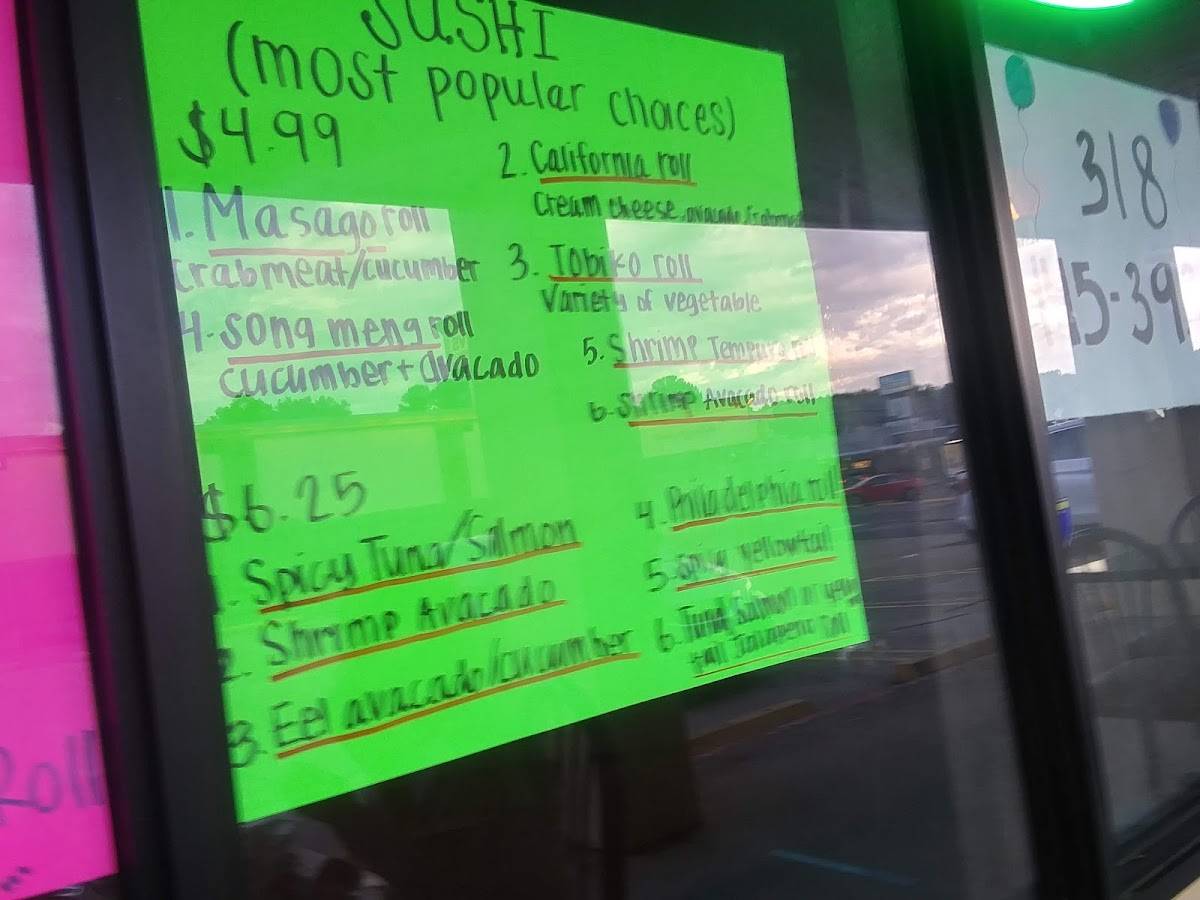 SUSHI
(most popular choices)
$4.99
1. Masago roll
crabmeat/cucumber
2. California roll
Cream cheese avacado/
3. Tobiko roll
Variety of vegetable
4. song meng roll
cucumber + avacado
5. Shrimp Tempura
6. Shrimp Avacado roll
$6.25
1. Spicy Tuna/Salmon
2. Shrimp Avacado
3. Eel avacado/cucumber
4. Philadelphia roll
5. Spicy yellowtail
6. Tuna Salmon or yellow
tail Jalapeno roll
318
15-39
Roll